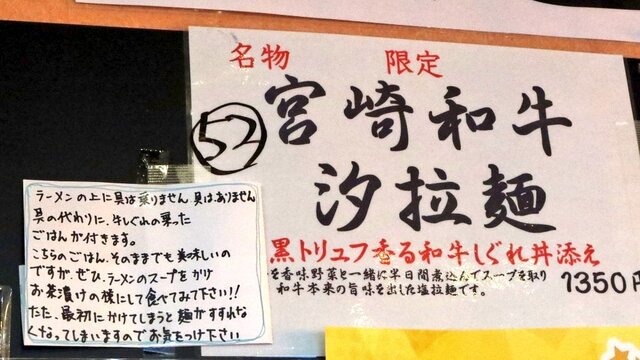 名物 限定
52
宮崎和牛
汐拉麺
黒トリュフ香る和牛しぐれ丼添え
を香味野菜と一緒に半日間煮込んでスープを取り
和牛本来の旨味を出した塩拉麺です。
1350円
ラーメンの上に具は乗りません、具はありません
具の代わりに、牛しぐれの乗った
ごはんが付きます。
こちらのごはん、そのままでも美味しいの
ですが、ぜひ、ラーメンのスープをかけ
お茶漬けの様にして食べてみて下さい!!
ただ、最初にかけてしまうと麺がすすれな
くなってしまいますのでお気をつけ下さい